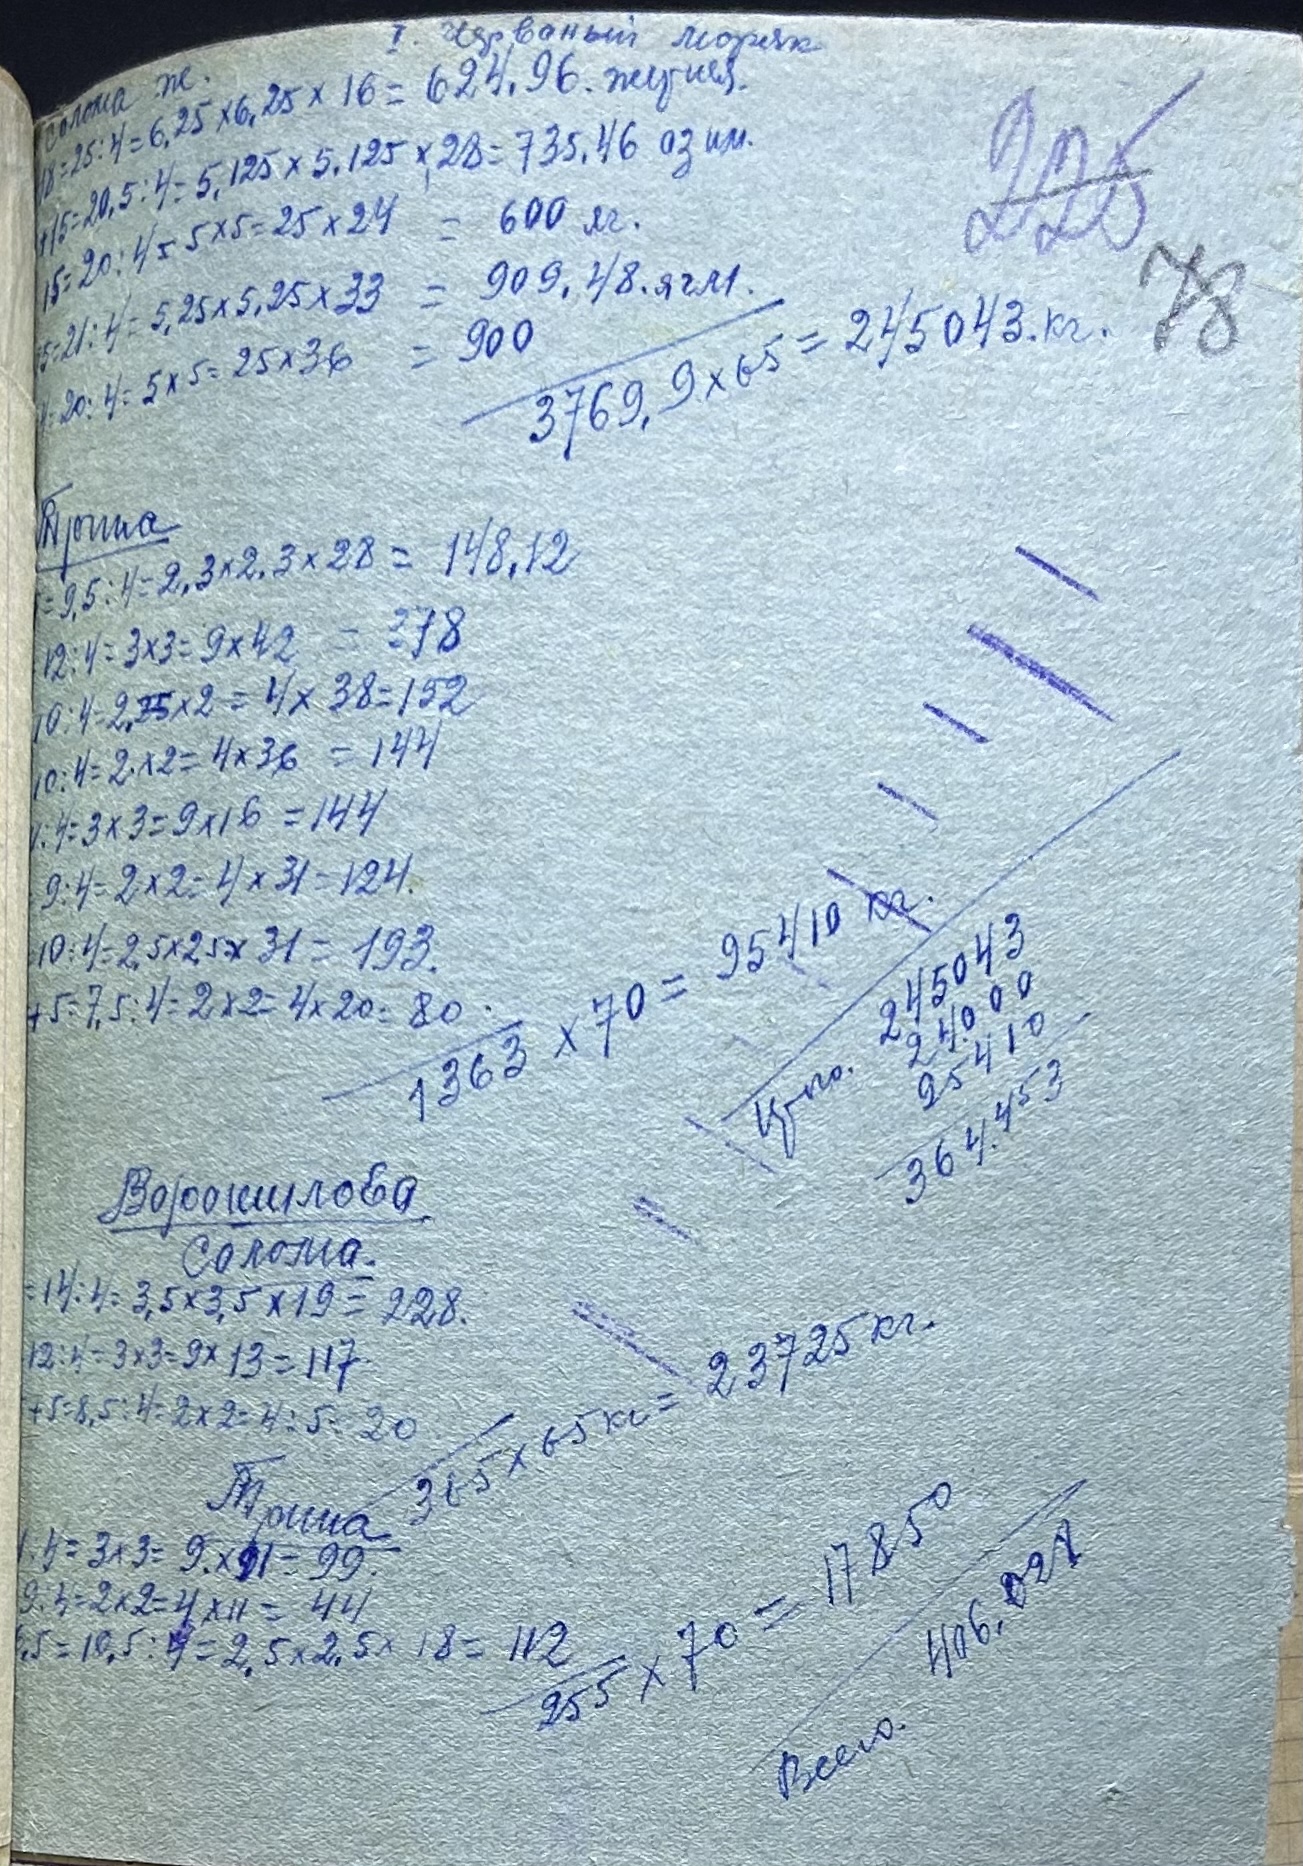 I. Червоный моряк
Солома ж.
18=25:4=6,25×6,25×16=624,96.
+15=20,5:4=5,125×5,125×28=735,46 озим.
15=20:4=5×5=25×24 = 600 яг.
5=21:4=5,25×5,25×33 = 909,48. ячм.
4=20:4=5×5=25×36 = 900
3769,9×65=245043.кг.
225
78
=9,5:4=2,3×2,3×28= 148,12
12:4=3×3=9×42 = 378
10:4=2,25×2=4×38=152
10:4=2×2=4×36 =144
:4=3×3=9×16 =144
9:4=2×2=4×31=124.
10:4=2,5×2,5×31= 193.
+5=7,5:4=2×2=4×20= 80.
1363 ×70= 95410 кг.
Итого. 245043
24.000
95410
364.453
Ворошилова
Солома.
=14:4=3,5×3,5×19= 228.
12:4=3×3=9×13=117
+5=8,5:4=2×2=4:5= 20
365×65кг=23725кг.
:4=3×3=9.×11=99.
9:4=2×2=4×11= 44
,5=10,5:4=2,5×2,5×18=112
255×70=17850
Всего. 406.028